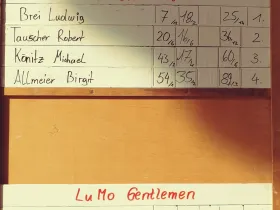 Brei Ludwig 7 18 25 1.
Tauscher Robert 20 16 36 2
Könitz Michael 43 17 60 3.
Allmeier Birgit 54 35 89 4.
LuMo Gentlemen